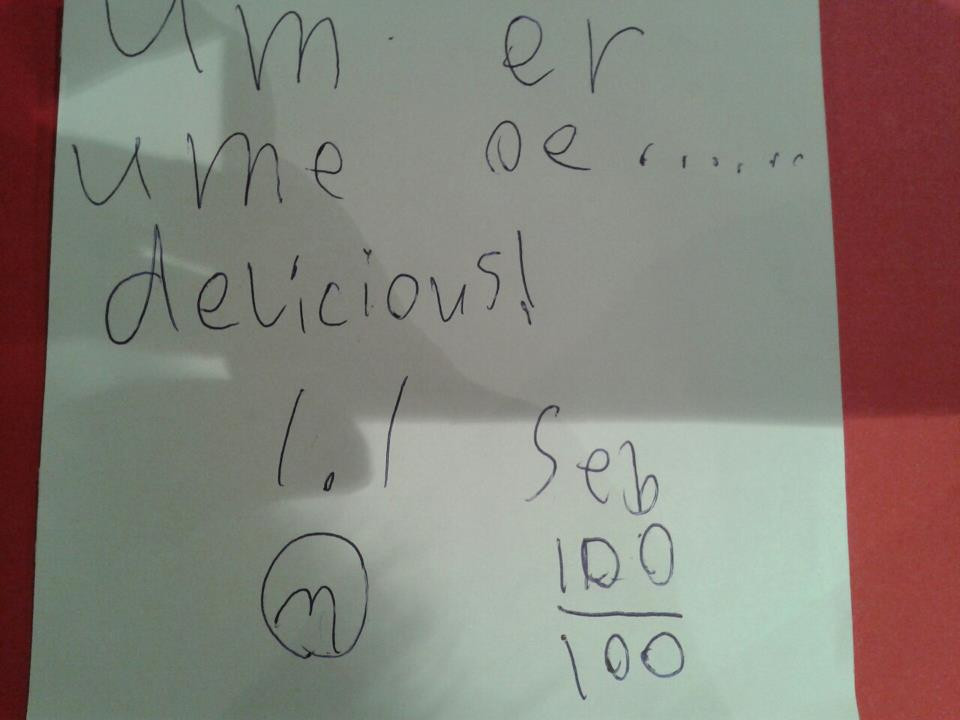 um. er
ume oe ......
delicious!
1.1 Seb
m 100
100